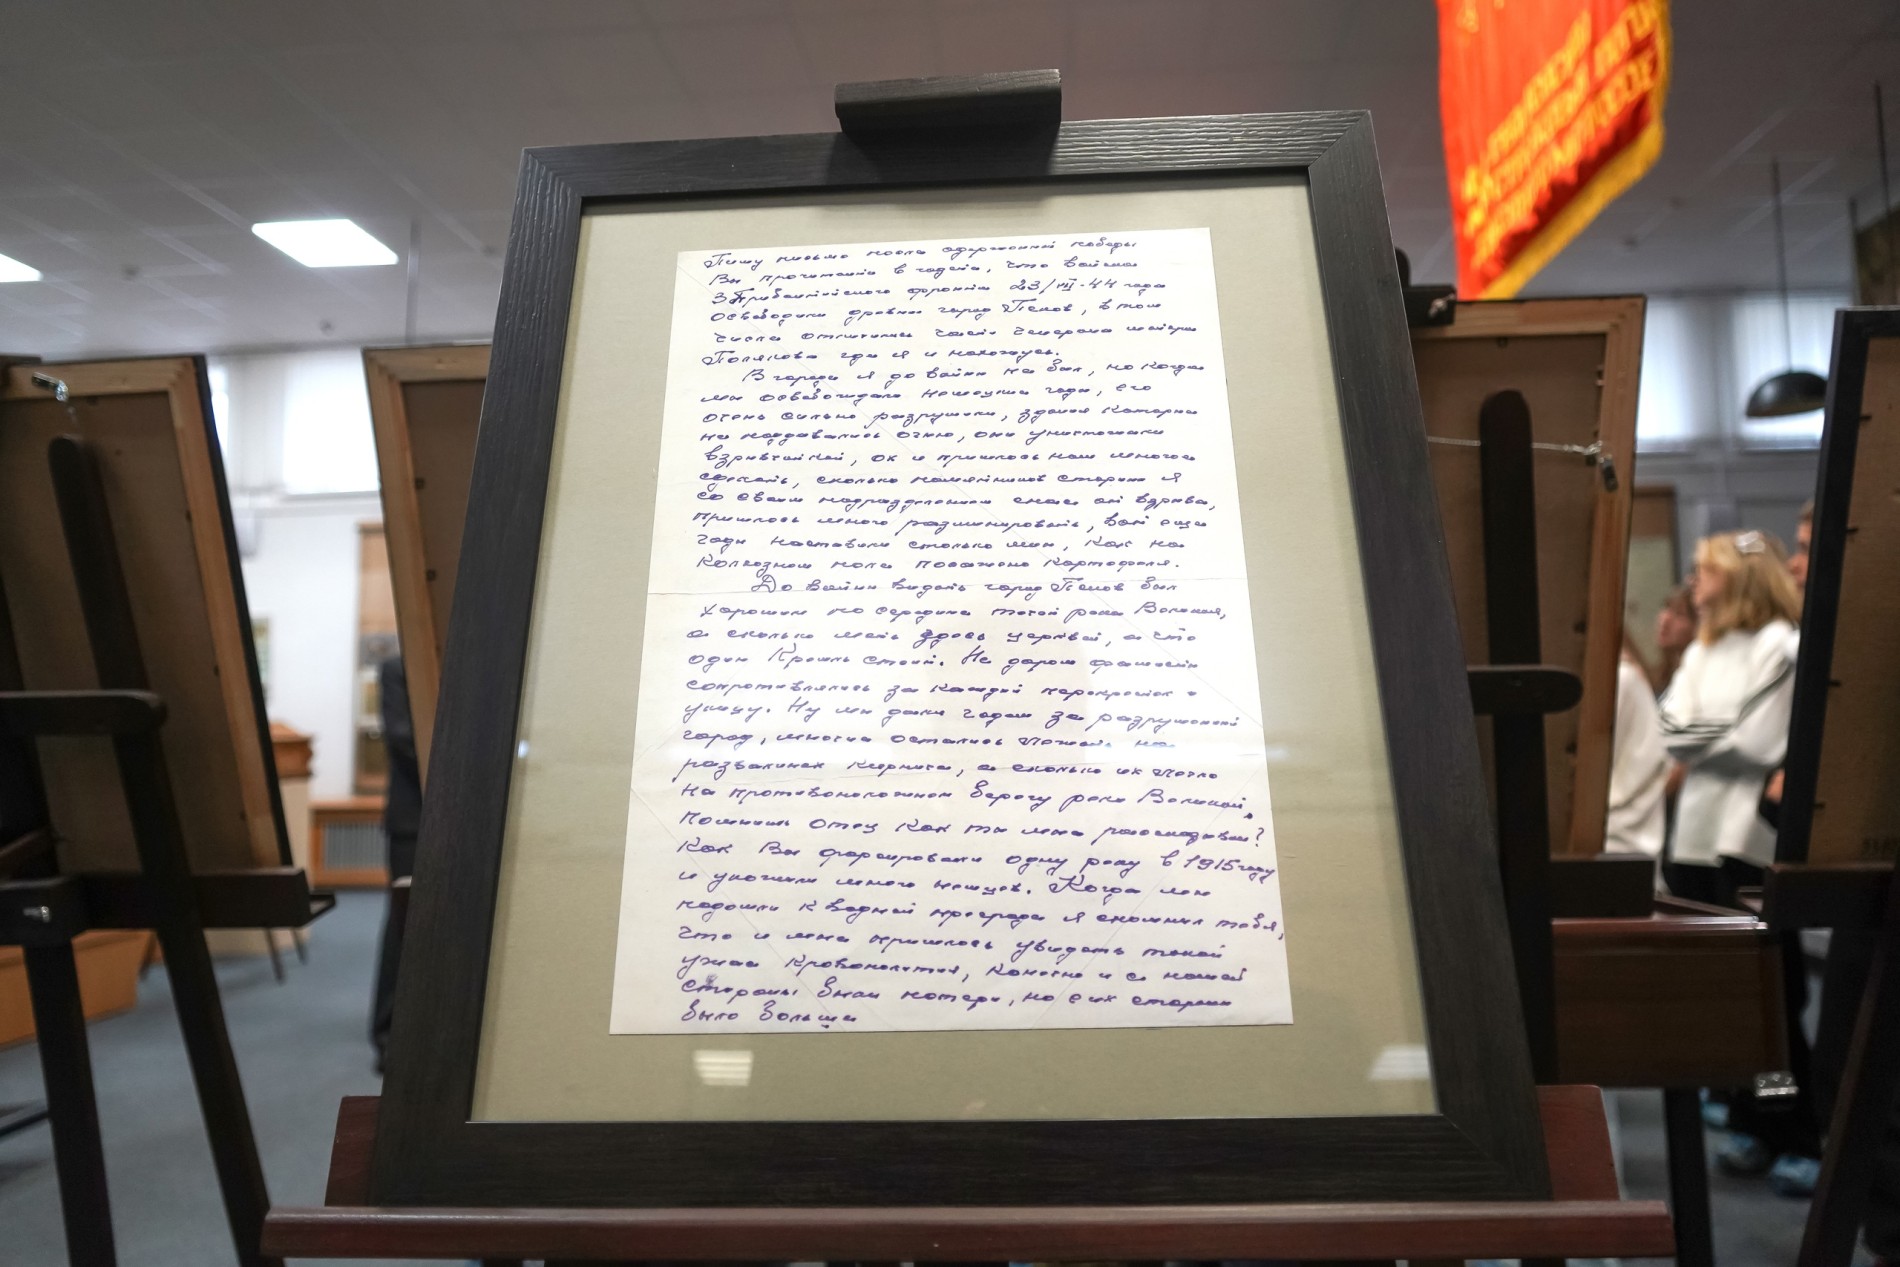 Пишу письмо после одержанной победы
Вы прочитали в газете, что войска
3 Прибалтийского фронта 23/VII-44 года
освободили древний город Псков, в том
числе отличились части генерала майора
Полякова где я и нахожусь.
В городе я до войны не был, но когда
мы освобождали немецкие гады, его
очень сильно разрушили, здания которые
не поддавались огню, они уничтожали
взрывчаткой, ох и пришлось нам многое
сделать, сколько памятников старины я
со своим подразделением спас от взрыва,
пришлось много разминировать, вот еще
гады наставили столько мин, как на
колхозном поле посажено картофеля.
До войны видать город Псков был
хорошим по середине течет река Великая,
а сколько мать здесь церквей, а что
один Кремль стоит. Не даром фашисты
сопротивлялись за каждый перекресток и
улицу. Ну мы дали гадам за разрушенный
город, многие остались лежать на
развалинах кирпича, а сколько их легло
на противоположном берегу реки Великой,
помнишь отец как ты мне рассказывал?
Как Вы форсировали одну реку в 1915 году
и уложили много немцев. Когда мы
подошли к водной преграде я вспомнил тебя,
что и мне пришлось увидать такой
ужас кровопролития, конечно и с нашей
стороны были потери, но с их стороны
было больше